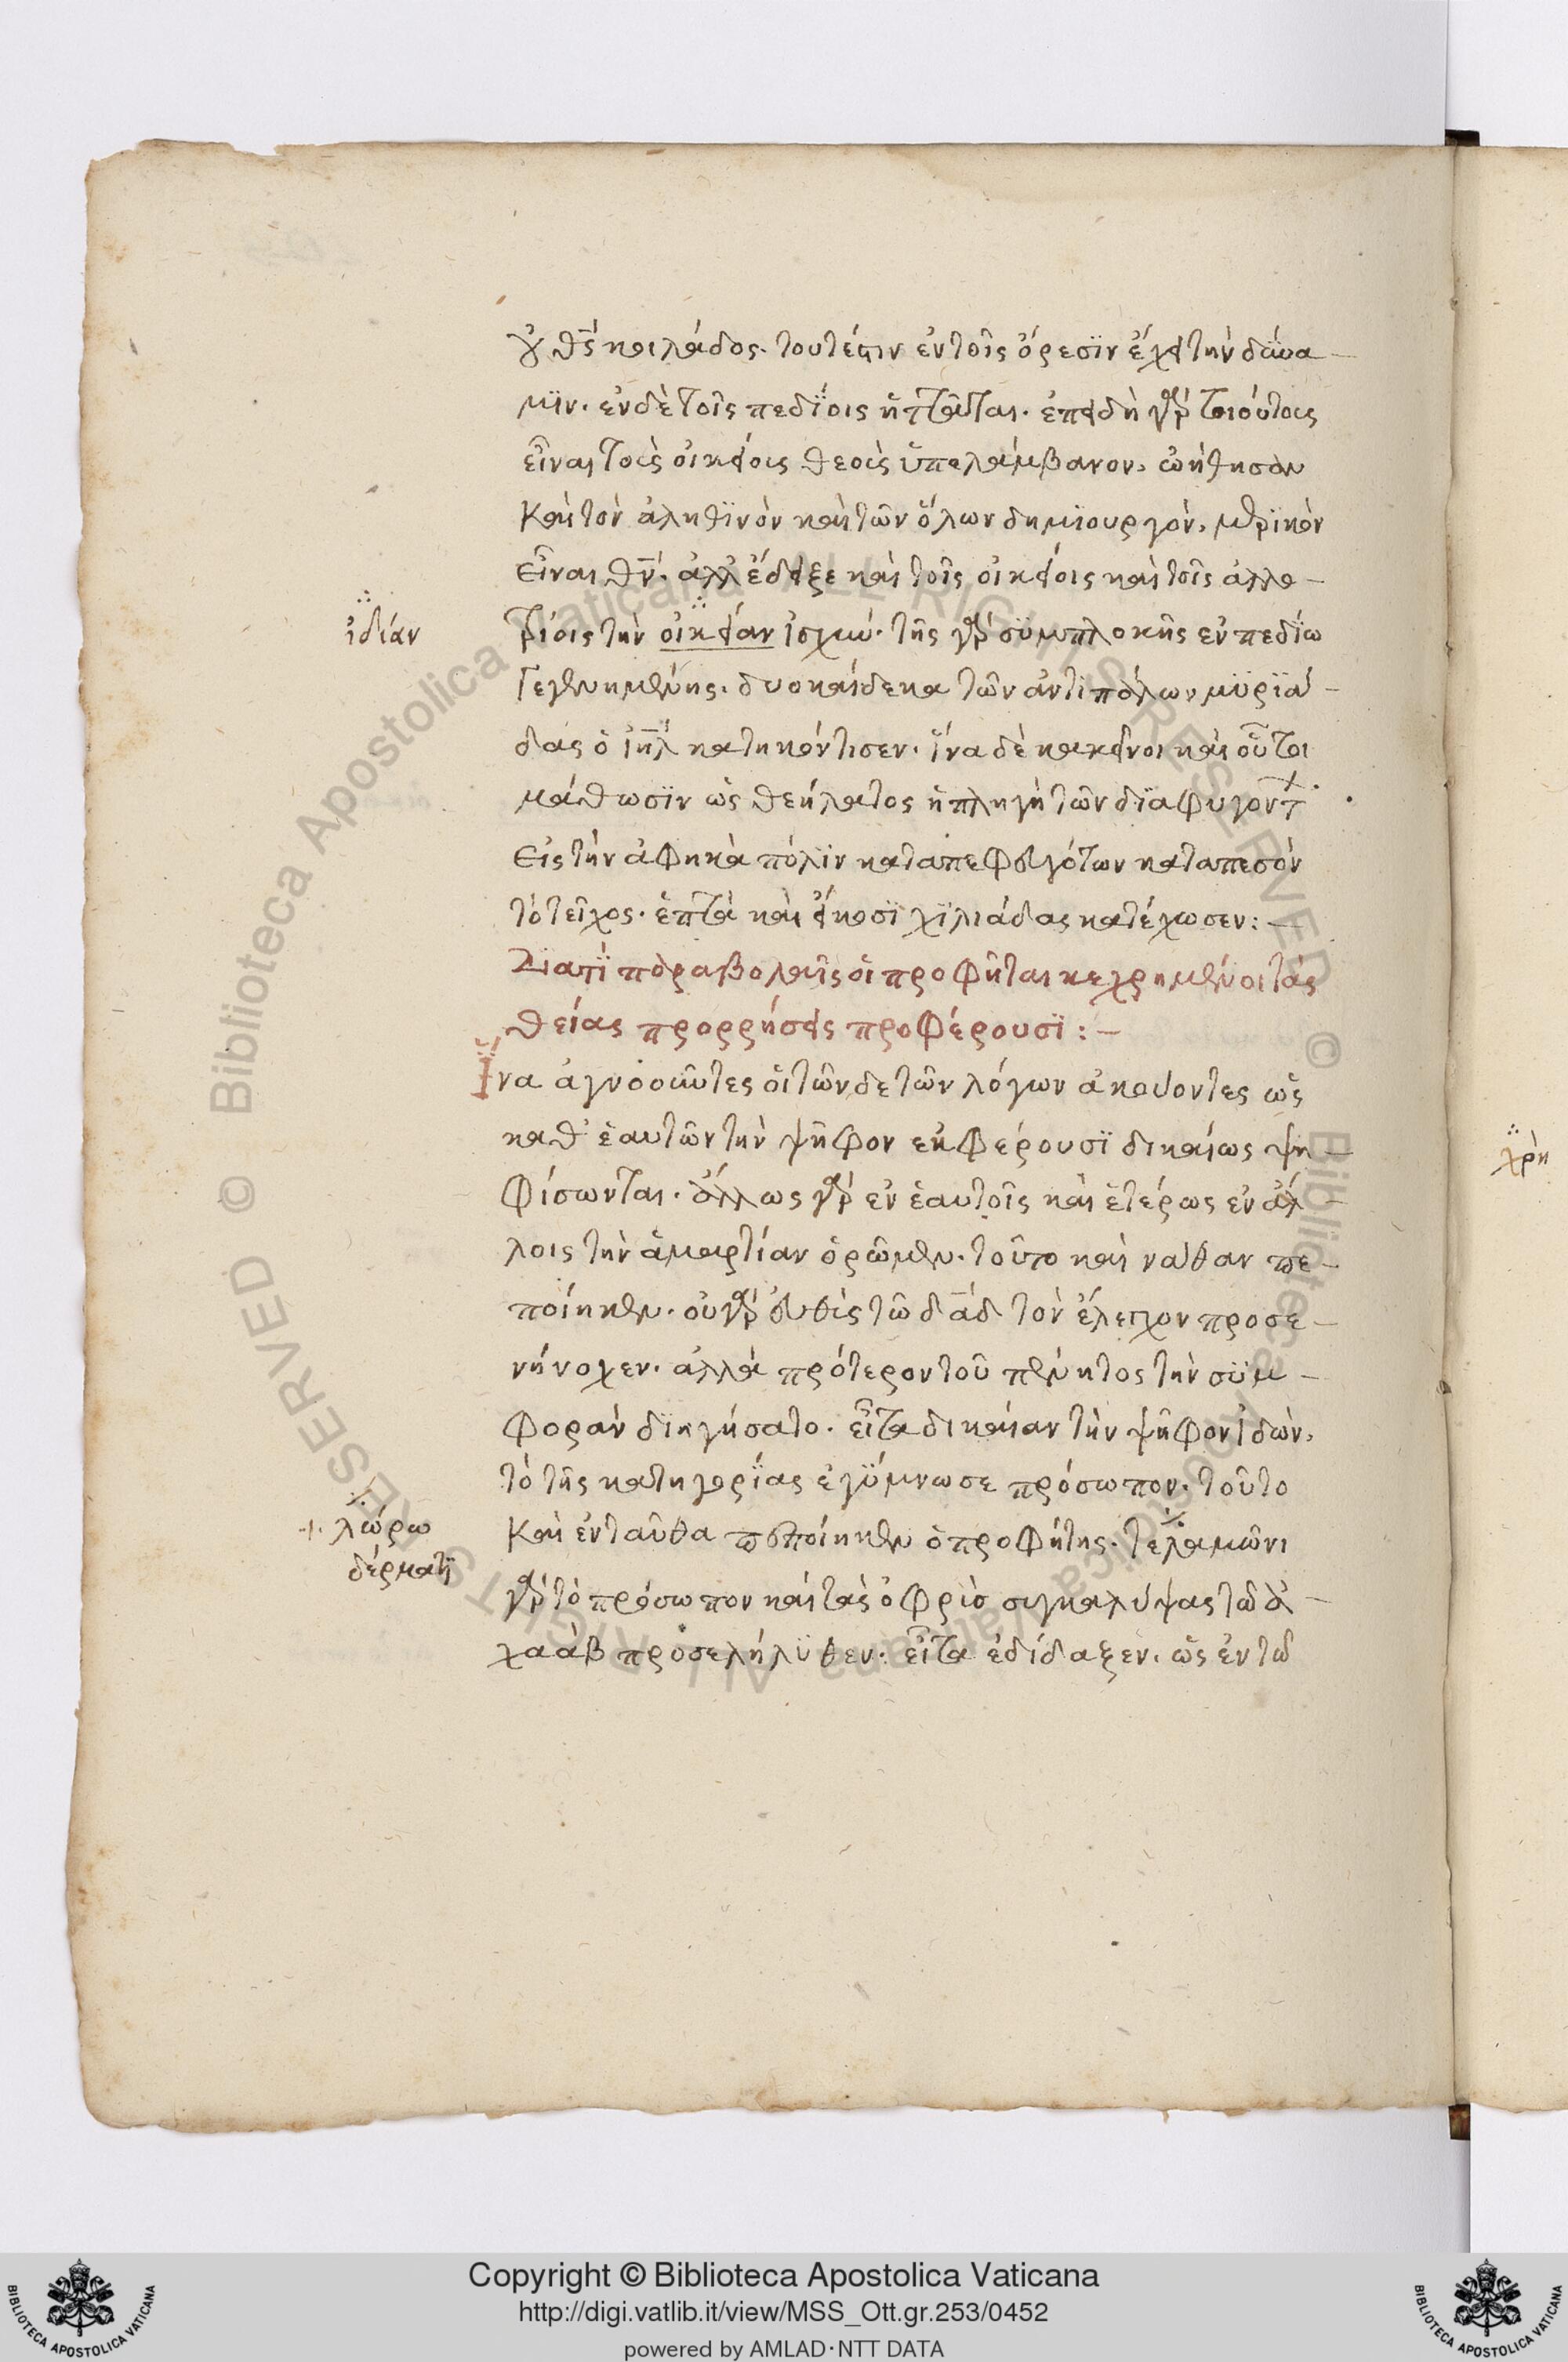 οὐ θς κοιλάδος. τουτέστιν ἐν τοῖς ὄρεσϊν ἔχει τὴν δύνα-
μϊν. ἐν δὲ τοῖς πεδΐοις ἡττᾶται. ἐπειδὴ γὰρ τοιούτους
εἶναι τοὺς οἰκείους θεοὺς ὑπελάμβανον, ὠήθησαν
καὶ τὸν ἀληθϊνὸν καὶ τῶν ὅλων δημϊουργὸν, μερϊκὸν
εἶναι θν. ἀλλ ἔδειξε καὶ τοῖς οἰκείοις καὶ τοῖς ἀλλο-
ἰδίαν
τρίοις τὴν οἰκείαν ἰσχύν. τῆς γὰρ συμπλοκῆς ἐν πεδίω
γεγενημένης. δυοκαίδεκα τῶν ἀντιπάλων μϋρϊά-
δας ὁ ιηλ κατηκόντισεν. ἵνα δὲ κακεῖνοι καὶ οὗτοι
μάθωσϊν ὡς θεήλατος ἡ πληγὴ τῶν δϊαφυγόντων
εἰς τὴν ἀφηκὰ πόλϊν καταπεφευγότων καταπεσὸν
τὸ τεῖχος. ἑπτὰ καὶ εἴκοσϊ χϊλιάδας κατέχωσεν:-
Διατί παραβολαῖς οἱ προφῆται κεχρημένοι τὰς
θείας προρρήσεις προφέρουσϊ:-
Ἵνα ἀγνοοῦντες οἱ τῶνδε τῶν λόγων ἀκούοντες ὡς
καθ' ἑαυτῶν τὴν ψῆφον ἐκφέρουσϊ δικαίως ψη-
φίσωνται. ἄλλως γὰρ ἐν ἑαυτοῖς καὶ ἑτέρως ἐν ἄλ-
λοις τὴν ἁμαρτίαν ὁρῶμεν. τοῦτο καὶ νάθαν πε-
ποίηκεν. οὐ γὰρ εὐθὺς τῶ δαδ τὸν ἔλεγχον προσε-
νήνοχεν. ἀλλὰ πρότερον τοῦ πένητος τὴν σϋμ-
φορὰν δϊηγήσατο. εἶτα δικαίαν τὴν ψῆφον ἰδὼν,
τὸ τῆς κατηγορΐας ἐγύμνωσε πρόσωπον. τοῦτο
λώρω
δέρματϊ
καὶ ἐνταῦθα πεποίηκεν ὁ προφήτης. τελαμῶνι
γὰρ τὸ πρόσωπον καὶ τὰς ὀφρῦς συγκαλύψας τῶ ἀ-
χαὰβ προσελήλϋθεν. εἶτα ἐδίδαξεν. ὡς ἐν τῶ
χρὴ
Copyright © Biblioteca Apostolica Vaticana
http://digi.vatlib.it/view/MSS_Ott.gr.253/0452
powered by AMLAD·NTT DATA
BIBLIOTECA APOSTOLICA VATICANA
BIBLIOTECA APOSTOLICA VATICANA
© Biblioteca Apostolica Vaticana ALL RIGHTS RESERVED
© Biblioteca Apostolica Vaticana ALL RIGHTS RESERVED